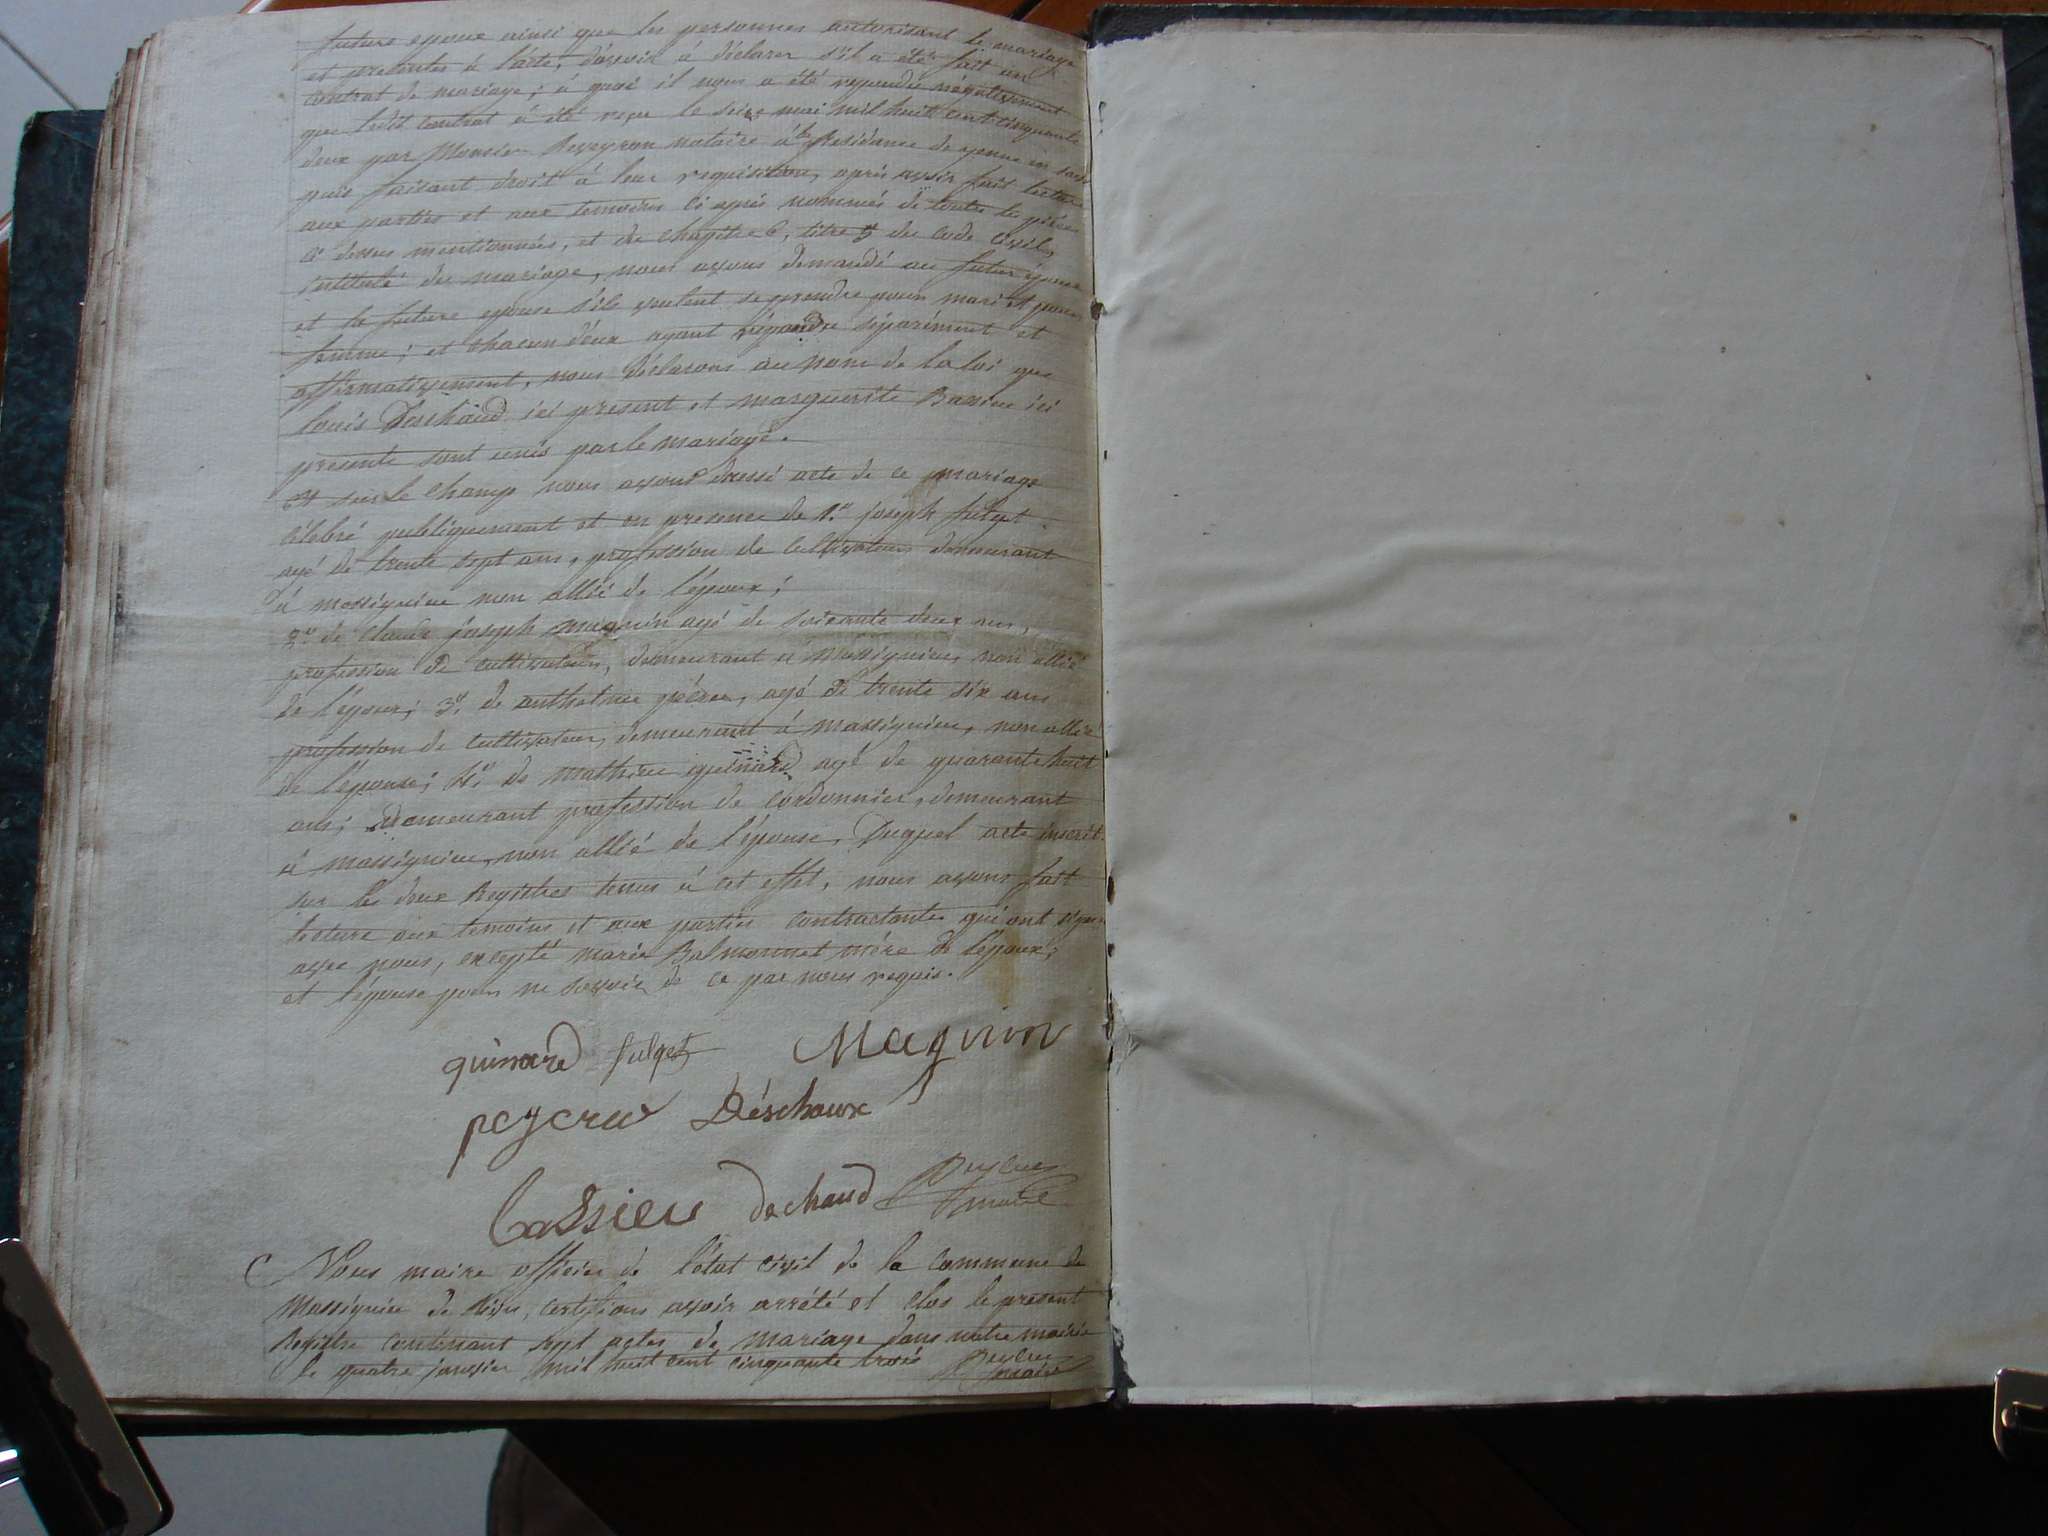 future epoux ainsi que les personnes autorisant le mariage
et presentes à l'acte, d'avoir à déclarer s'il a été fait un
contrat de mariage; à quoi il nous a été repondu négativement
que ledit contrat à été reçu le seize mai mil huit cent cinquante
deux par Monsieur notaire à la Residance de yenne en
puis faisant droit à leur requisition, après avoir fait lecture
aux parties et aux temoins ci après nommés de toutes les pièces
ci dessus mentionnées, et du chapitre 6, titre 5 du code civil,
intitulé du mariage, nous avons demandé au futur époux
et la future epouse s'ils veulent se prendre pour mari et pour
femme; et chacun d'eux ayant répondu séparément et
affirmativement, nous déclarons au nom de la loi que
louis Deschaud ici present et marguerite Bassieu ici
presente sont unis par le mariage.
et sur le champ nous avons dressé acte de ce mariage
célébré publiquement et en presence de 1.er joseph fulget
agé de trente sept ans, profession de cultivateur demeurant
à massignieu non allié de l'époux;
2.e de Claude joseph magnin agé de soixante deux ans,
profession de cultivateur, demeurant à Massignieu, non allié
de l'époux; 3.e de anthelme agé de trente six ans
profession de cultivateur, demeurant à massignieu, non allié
de l'épouse; 4.e de mathieu guinard agé de quarante huit
ans; demeurant profession de cordonnier, demeurant
à massignieu, non allié de l'épouse. Duquel acte inscrit
sur les deux Registres tenus à cet effet, nous avons fait
lecture aux temoins et aux parties contractantes qui ont signé
avec nous, excepté marie Balmonnet mère de l'époux;
et l'épouse pour ne savoir de ce par nous requis.
guinard fulget Magnin
peycru Déschaux
Bassieu dechaud Peycru
maire
Nous maire officier de l'état civil de la commune de
Massignieu de Rives, certifions avoir arrêté et clos le present
Registre contenant sept actes de mariage dans notre mairie
le quatre janvier mil huit cent cinquante trois Peycru
maire